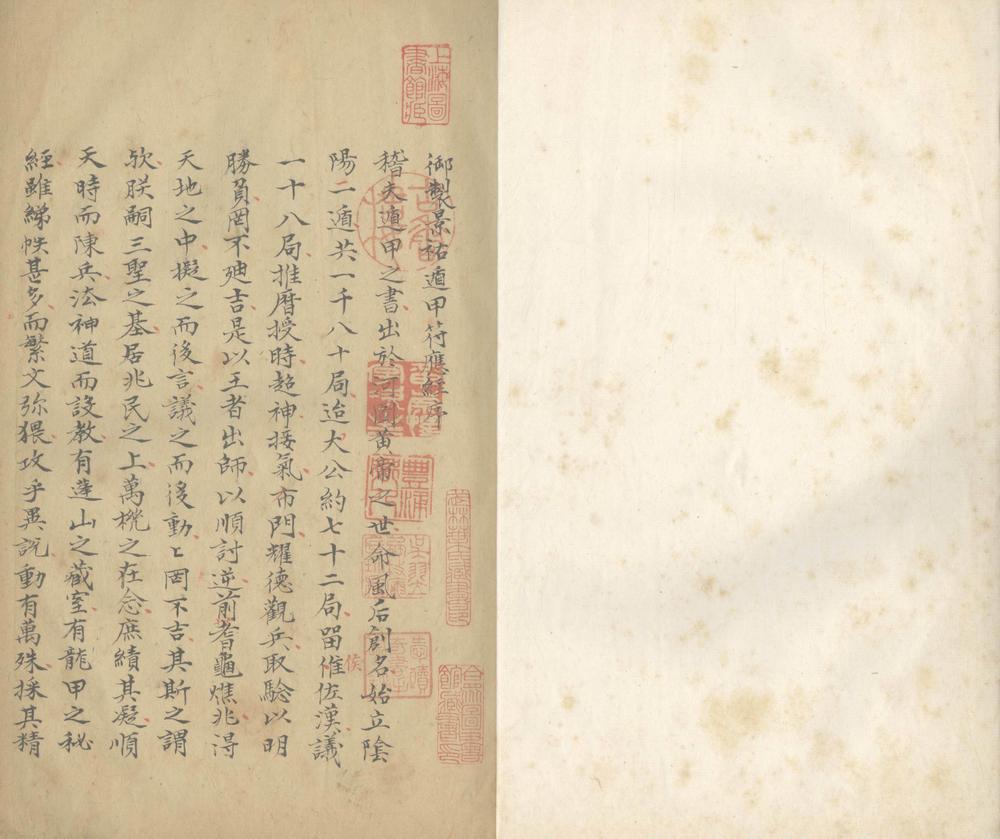 御製景祐遁甲符應經序
稽夫遁甲之書出於河圖黃帝之世命風后創名始立陰
陽二遁共一千八十局迨大公約七十二局畱侯佐漢議
一十八局推曆授時超神接氣布門耀德觀兵取驗以明
勝負罔不廸吉是以王者出師以順討逆前耆龜燋兆淂
天地之中擬之而後言議之而後動〻罔不吉其斯之謂
欤朕嗣三聖之基居兆民之上萬機之在念庶績其凝順
天時而陳兵法神道而設教有蓬山之藏室有龍甲之秘
經雖綈帙甚多而繁文弥猥攻乎異說動有萬殊採其精
上海圖書館臧